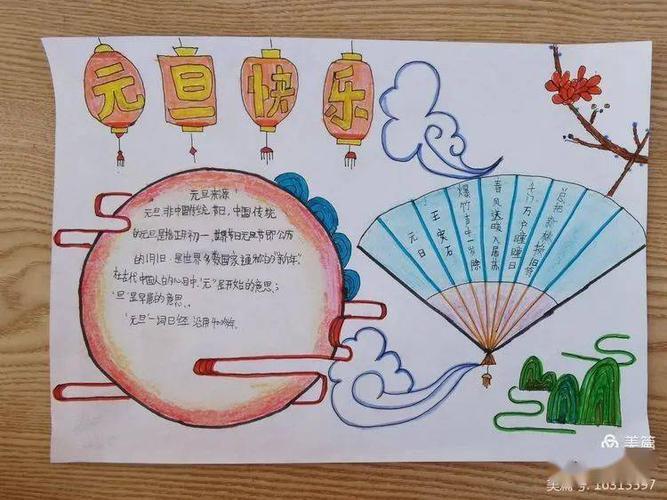 元旦快乐
元旦来源
元旦非中国传统节日，中国传统
的元旦是指正月初一，节日元旦节即公历
的1月1日，是世界多数国家通称的"新年"．
在古代中国人的心目中"元"是开始的意思；
"旦"是早晨的意思．
"元旦"一词已经沿用
元日
王安石
爆竹声中一岁除
春风送暖入屠苏
千门万户曈曈日
总把新桃换旧符
美篇
美篇号:10313397